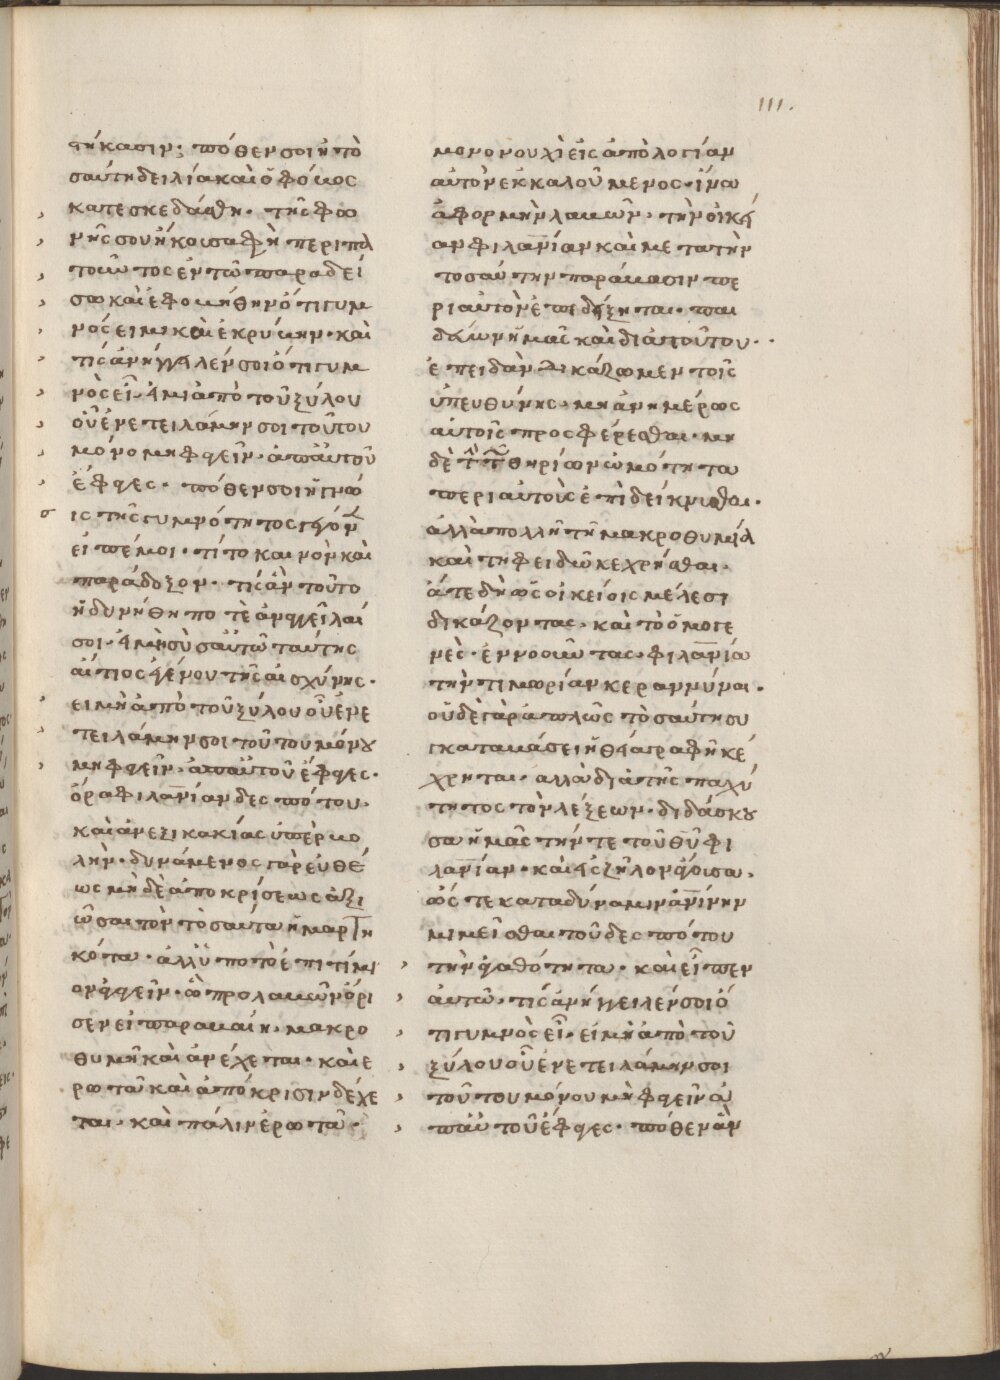 111.
φήκασιν; πόθεν σοι ἡ το
σαύτη δειλία καὶ ὁ φόβος
κατεσκεδάσθη. τῆς φω
νῆς σου ἤκουσα φὴ περιπα
τοῦντος ἐν τῶ παραδεί
σω καὶ ἐφοβήθην ὅτι γυμ
νός εἰμι καὶ ἐκρύβην. καὶ
τίς ἀνήγγειλέν σοι ὅτι γυμ
νὸς εἶ. εἰ μὴ ἀπὸ τοῦ ξύλου
οὗ ἐνετειλάμην σοι τούτου
μόνου μὴ φαγεῖν. ἀπ' αὐτοῦ
ἔφαγες. πόθεν σοι ἡ γνῶ
σις τῆς γυμνότητος γέγον
εἰπέ μοι. τί τὸ καινὸν καὶ
παράδοξον. τίς ἂν τοῦτο
ἠδυνήθη ποτὲ ἀναγγεῖλαί
σοι. εἰ μὴ σὺ σαυτῶ ταύτης
αἴτιος γέγονου τῆς αἰσχύνης.
εἰ μὴ ἀπὸ τοῦ ξύλου οὗ ἐνε
τειλάμην σοι τούτου μόνου
μὴ φαγεῖν. ἀπ' αὐτοῦ ἔφαγες.
ὅρα φιλανίαν δεσπότου.
καὶ ἀνεξικακίας ὑπερβο
λήν. δυνάμενος γὰρ εὐθέ
ως μηδὲ ἀποκρίσεως ἀξι
ῶσαι τὸν τοσαῦτα ἡμαρτη
κότα.
σεν εἰ παραβαίη. μακρο
θυμῆ καὶ ἀνέχεται. καὶ ἐ
ρωτᾶ καὶ ἀπόκρισιν δέχε
ται. καὶ πάλιν ἐρωτᾶ.
μονονουχὶ εἰς ἀπολογίαν
αὐτὸν ἐκκαλούμενος. ἵνα
ἀφορμὴν λαβὼν. τὴν οἰκεί
αν φιλανίαν καὶ μετὰ τὴν
τοσαύτην παράβασιν πε
ρὶ αὐτὸν ἐπιδείξηται. παι
δεύων ἡμᾶς καὶ διὰ τούτου.
ἐπειδὰν δικάζωμεν τοῖς
ὑπευθύνοις. μὴ ἀνημέρως
αὐτοῖς προσφέρεσθαι. μη
δὲ τὴν τῶν θηρίων ὠμότητα
περὶ αὐτοὺς ἐπιδείκνυσθαι.
ἀλλὰ πολλῆ τῆ μακροθυμία
καὶ τῆ φειδῶ κεχρῆσθαι.
ἅτε δὴ ὡς οἰκείοις μέλεσι
δικάζοντας. καὶ τὸ ὁμογε
νὲς. ἐννοοῦντας. φιλανία
τὴν τιμωρίαν κεραννύναι.
οὐδὲ γὰρ ἁπλῶς τοσαύτη συ
γκαταβάσει ἡ θεία γραφὴ κέ
χρηται. ἀλλὰ διὰ τῆς παχύ
τητος τῶν λέξεων. διδάσκου
σα ἡμᾶς τήν τε τοῦ θῦ φι
λανίαν. καὶ εἰς ζῆλον ἄγουσα.
ὥστε κατὰ δύναμιν ἀνίνην
μιμεῖσθαι τοῦ δεσπότου
τὴν ἀγαθότητα. καὶ εἶπεν
αὐτῶ. τίς ἀνήγγειλέν σοι ὅ
τι γυμνὸς εἶ. εἰ μὴ ἀπὸ τοῦ
ξύλου οὗ ἐνετειλάμην σοι
τούτου μόνου μὴ φαγεῖν ἀ
π' αὐτοῦ ἔφαγες. πόθεν ἂν